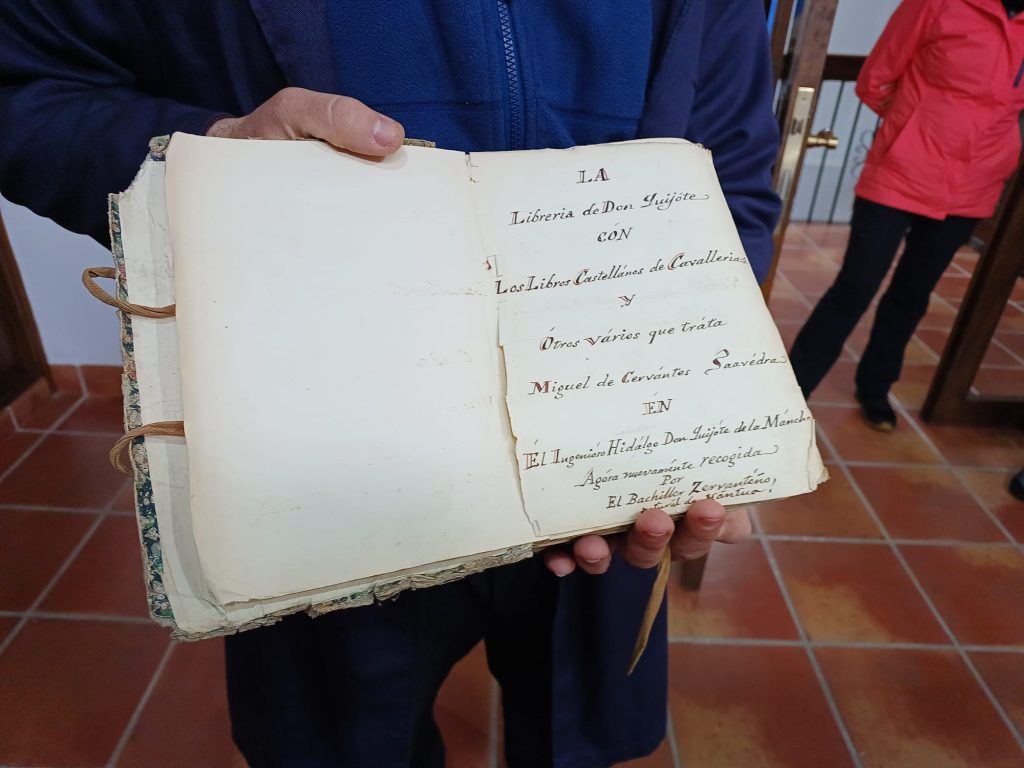 LA
Libreria de Don Quijóte
CÓN
Los Libros Castellános de Cavalleria
Y
Ótros vários que tráta
Miguel de Cervántes Saavédra
ÉN
Él Ingenióso Hidálgo Don Quijóte de la Máncha
Ágóra nuevaménte recogida
Por
El Bachillér Zervantéño,
de Mántua.